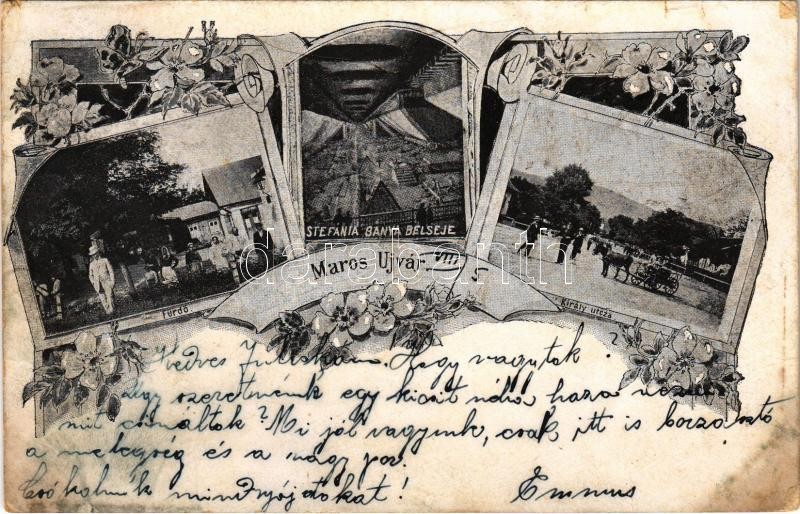 STEFÁNIA BÁNYA BELSEJE
Maros Ujvár VIII 5
Fürdő
Király utcza
Kedves Juliskám. Hogy vagytok?
Úgy szeretnénk egy kicsit haza nézni
mit csináltok? Mi jól vagyunk, csak itt is borzasztó
a melegség és a nagy por.
Csókolunk mindnyájótokat! Emmus
darabanth